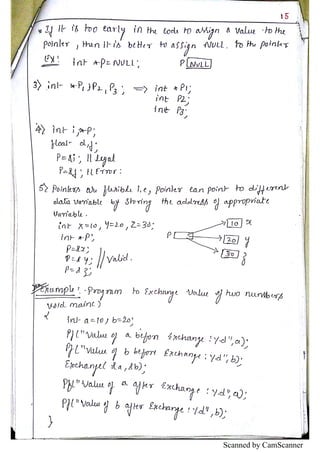 15
* If it is too early in the code to assign a value to the
pointer, then it is better to assign NULL. to the pointer
Ex: int *p= NULL; P NULL
3) int *P1, P2, P3; => int *P1;
int P2;
int P3;
4) int i,*p;
float d,j;
P=&i; // legal
P=&j; // Error:
5) Pointers are flexible i.e, pointer can point to different
data variable by storing the address of appropriate
variable.
int x=10, y=20, z=30;
int *P;
P=&x;
P=&y; // valid.
P=&z;
P 10 x
20 y
30 z
Example: Program to Exchange value of two numbers
void main()
{
int a=10, b=20;
Pf("value of a before Exchange : %d", a);
Pf("value of b before Exchange : %d", b);
Exchange( &a, &b);
Pf("value of a after Exchange : %d", a);
Pf("value of b after Exchange : %d", b);
}
Scanned by CamScanner